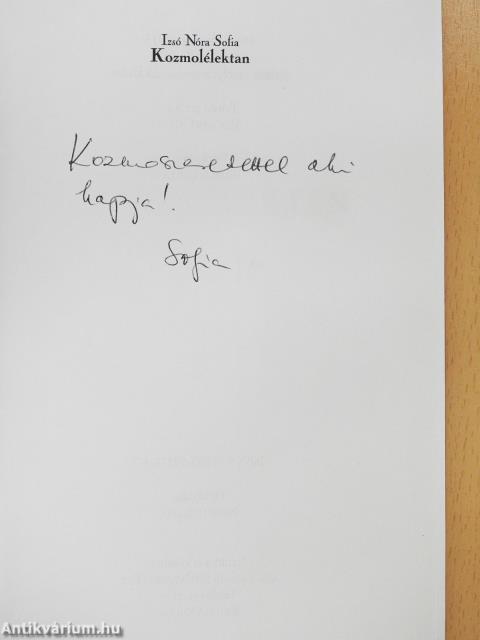 Izsó Nóra Sofia
Kozmolélektan
Kozmoszeretettel aki
kapja!
Sofia
Antikvárium.hu